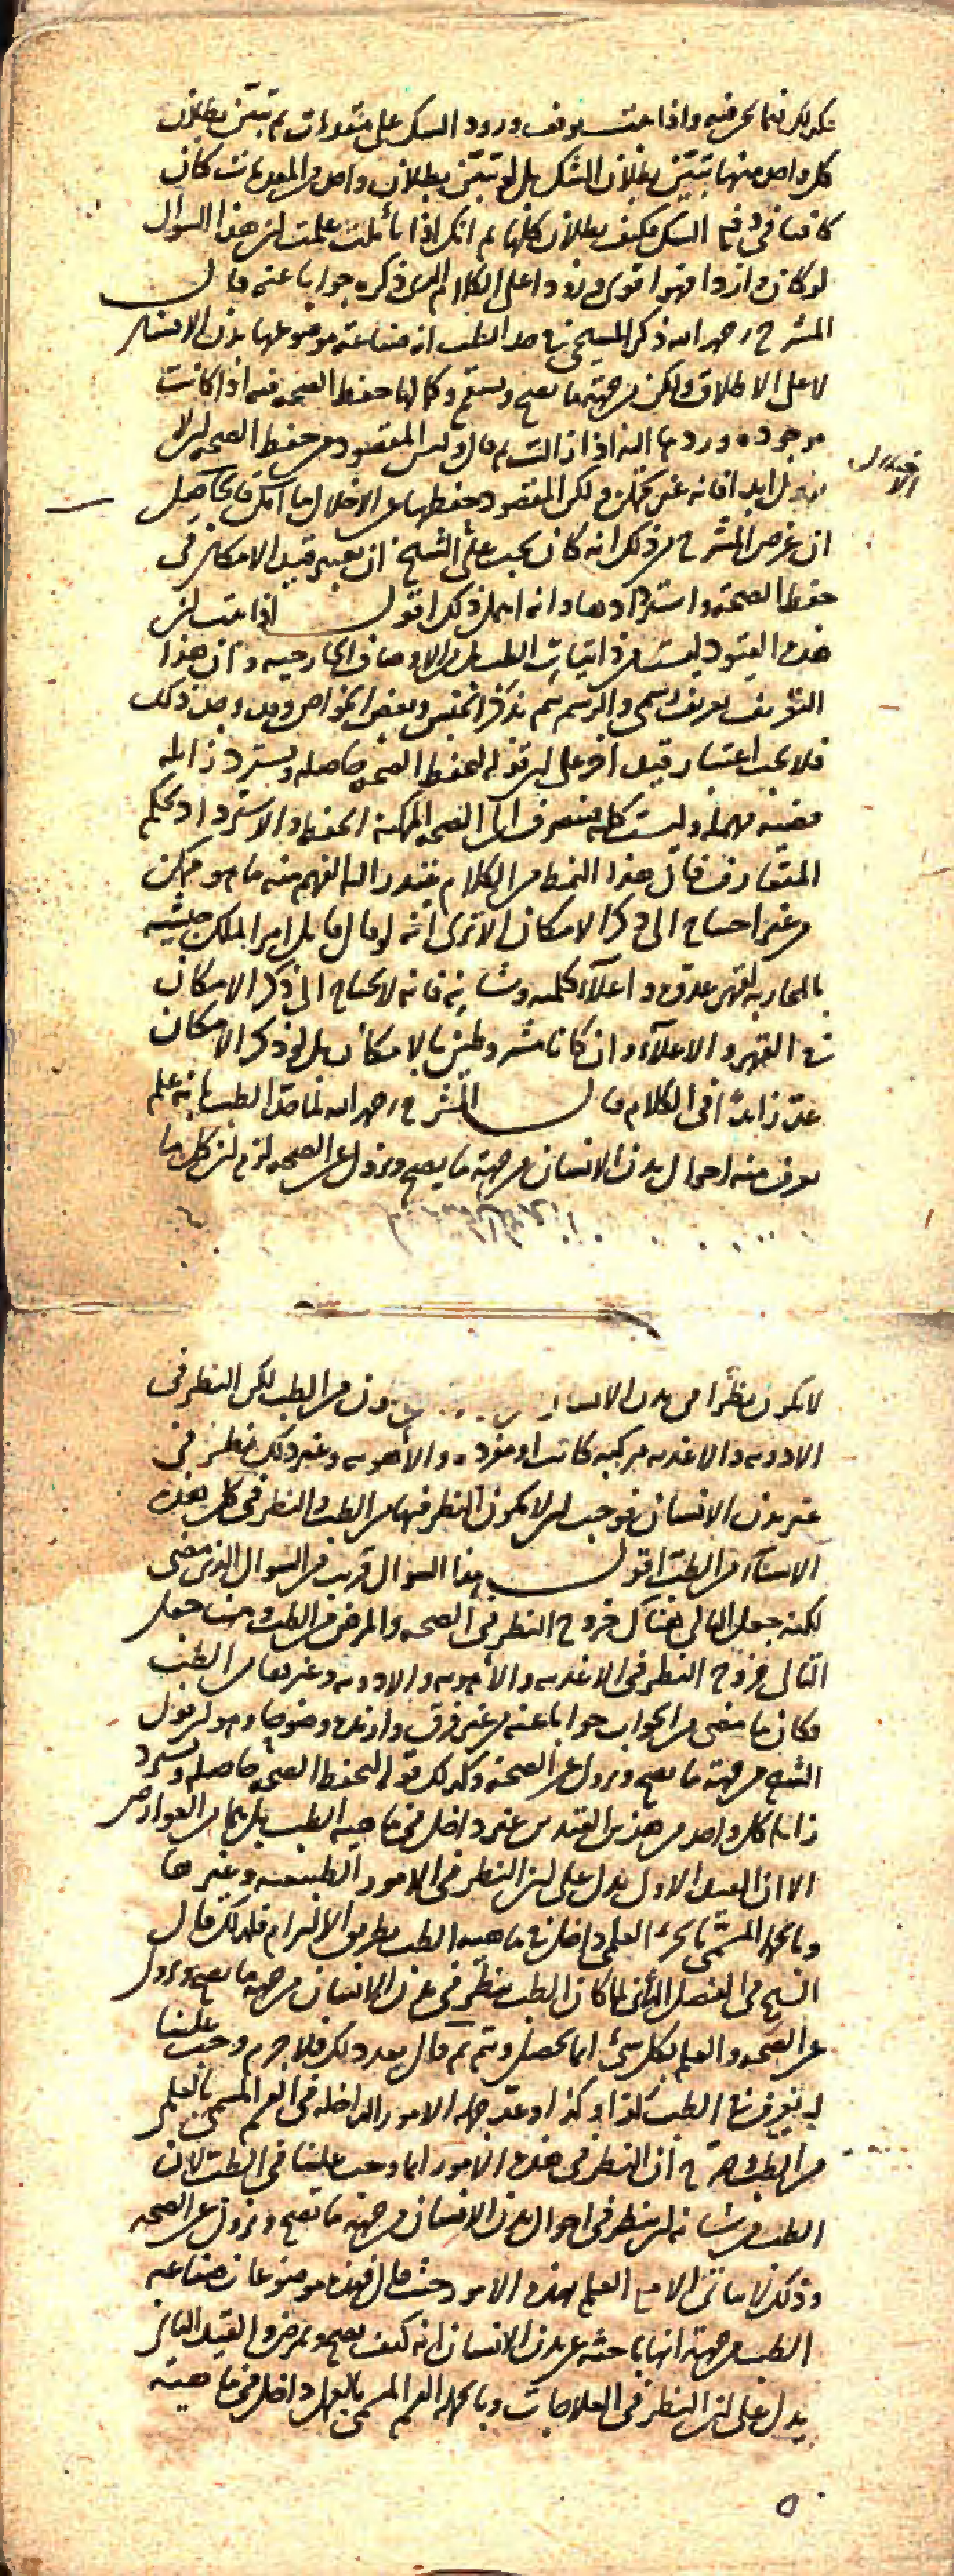 فكذلك فيما نحن فيه واذا عرفت توقف ورود الشك على مقدمات لم تبين بطلان
كل واحد منها تبين بطلان الشك بل لو تبين بطلان واحد من المقدمات كان
كافيا في دفع الشك فكيف بطلان كلها ثم انك اذا تأملت علمت ان هذا السوال
لو كان واردا فهو اقوى ورودا على الكلام الذى ذكره جوابا عنه قال
المشرح رحمه الله ذكر المسيحى في حد الطب انه صناعة موضوعها بدن الانسان
لا على الاطلاق ولكن من جهة ما يصح ويسقم وكمالها حفظ الصحه فيه اذا كانت
موجوده وردها اليه اذا زالت ثم قال وليس المقصود من حفظ الصحه ان لا
تزول ابدا فانه غير ممكن ولكن المقصود حفظها عن الاخلال ما امكن فالحاصل
الاختلال
ان غرض المشرح من ذكر انه كان يجب على الشيخ ان يعتبر قيد الامكان في
حفظ الصحة واستردادها وانه اهمل ذلك اقول اذا عرفت ان
هذه القيود ليست من ذاتيات الطب بل من الاوصاف الخارجيه وان هذا
التعريف تعريف رسمى والرسم يتم بذكر الجنس وبعض الخواص وقد وجد ذلك
فلا يجب اعتبار قيد اخر على ان قوله لتحفظ الصحه حاصله وتسترد زائله
قضيه مهمله وليست كليه فتنصرف الى الصحه الممكنه الحفظ والاسترداد بحكم
المتعارف فان هذا النمط من الكلام يتبادر الى الفهم منه ما هو ممكن
من غير احتياج الى ذكر الامكان الا ترى انه لو قال قايل امر الملك جيشه
بالمحاربه لقهر عدوه واعلآء كلمته وشانه فانه لا يحتاج الى ذكر الامكان
في القهر والاعلآء وان كانا مشروطين بالامكان بل لو ذكر الامكان
عد زايدًا في الكلام قال المشرح رحمه الله لما حد الطب بانه علم
يعرف منه احوال بدن الانسان من جهة ما يصح ويزول عن الصحه لزم ان كل ما
لا يكون نظرًا في بدن الانسان دون من الطب لكن النظر في
الادويه والاغذيه مركبه كانت او مفرده والاهويه وغير ذلك نظر في
غير بدن الانسان فوجب ان لا يكون النظر فيها من الطب والنظر في كل هذه
الاشيآء من الطب اقول هذا السوال قريب من السوال الذى مضى
لكنه جعل التالى هناك خروج النظر في الصحه والمرض من الطب وهنا جعل
التالى خروج النظر في الاغذيه والاهويه والادويه وغيرها من الطب
فكان ما مضى من الجواب جوابا عنه من غير فرق وازيده وضوحا وهو ان قول
الشيخ من جهة ما يصح ويزول عن الصحة وكذلك قوله لتحفظ الصحه حاصله وتسترد
زائله كل واحد من هذين القيدين غير داخل في ماهيه الطب بل هما من العوارض
الا ان القيد الاول يدل على ان النظر في الامور الطبيعيه وغيرها
وبالجمله المسمى بالجزء العلمى داخل في ماهيه الطب بطريق الالتزام فلذلك قال
الشيخ في الفصل الثانى لما كان الطب ينظر في بدن الانسان من جهة ما يصح ويزول
عن الصحه والعلم بكل شئ انما يحصل ويتم ثم قال بعد ذلك فلا جرم وجب علينا
ان نعرف في الطب كذا وكذا وعد جمله الامور الداخله في القسم المسمى بالعلم
من الطب وصرح ان النظر في هذه الامور انما وجب علينا في الطب لان
الطب من شانه ان ينظر في احوال بدن الانسان من جهة ما يصح ويزول عن الصحه
وذلك لا يتاتى الا مع العلم بهذه الامور حيث قال فهذه موضوعات صناعه
الطب من جهة انها باحثه عن بدن الانسان انه كيف يصح ويمرض والقيد الثانى
يدل على ان النظر في العلاجات وبالجمله القسم المسمى بالعمل داخل في ماهية